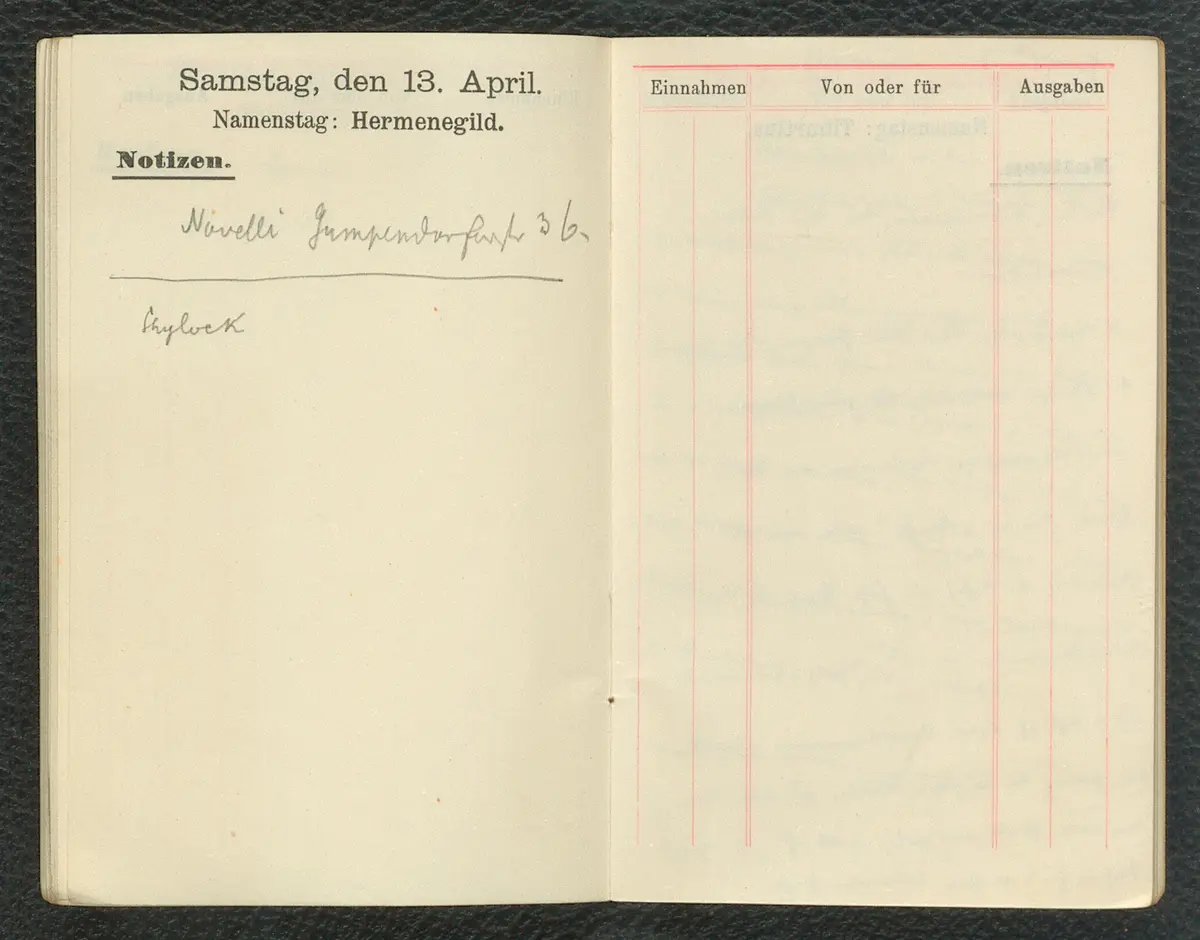 Samstag, den 13. April.
Namenstag: Hermenegild.
Notizen.
Novelli Gumpendorferstr 36.
Shylock
Einnahmen Von oder für Ausgaben